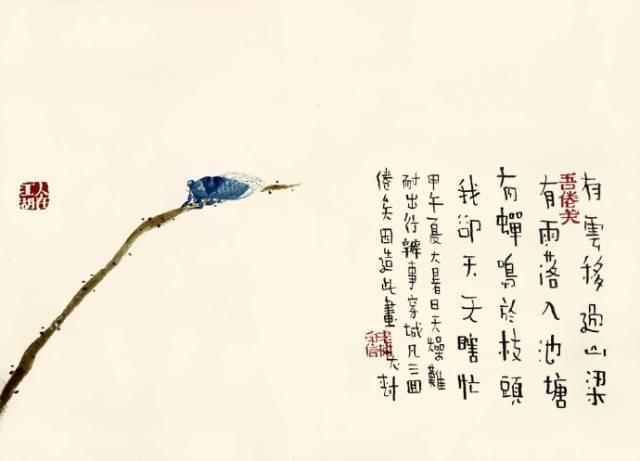 有雲移過山梁
吾倦矣
有雨落入池塘
有蟬鳴於枝頭
我卻天天瞎忙
甲午夏大暑日天燥難
耐出行辦事穿城凡三回
倦矣因造此畫
人在江湖